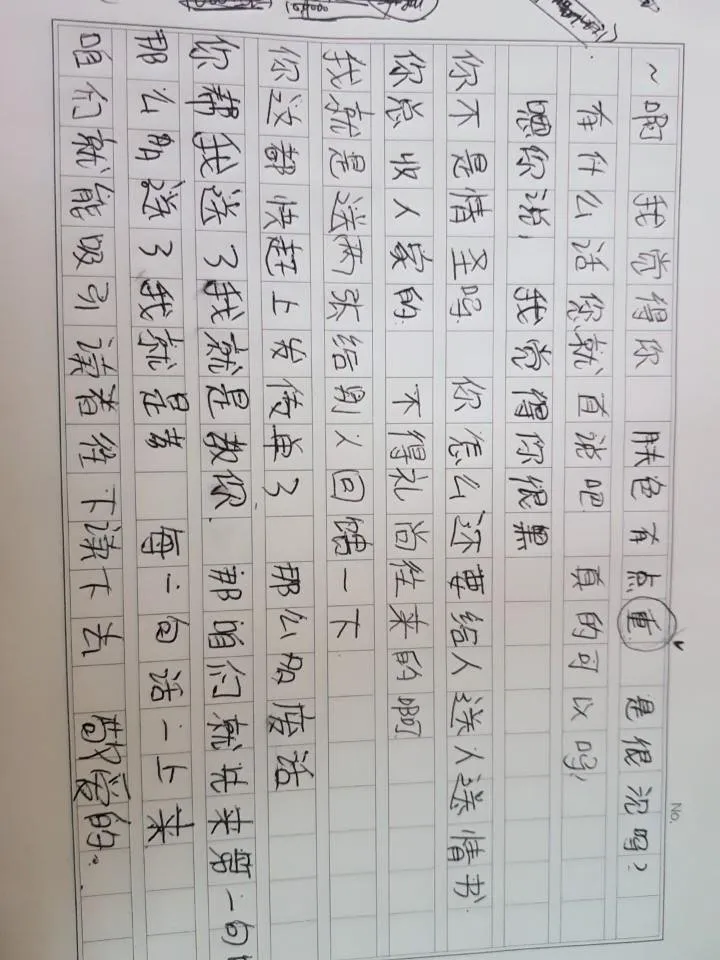 ~啊 我觉得你 肤色有点重 是很沉吗?
有什么话你就直说吧 真的可以吗,
嗯你说, 我觉得你很黑
你不是情圣吗 你怎么还要给人送人送情书.
你总收人家的 不得礼尚往来的啊
我就是送两张给别人回馈一下
你这都快赶上发传单了 那么多废话
你帮我送了我就是教你. 那咱们就先来第一句
那么的送了我就是帮 每一句话一上来
咱们就能吸引读者往下读下去 都爱的.
No.